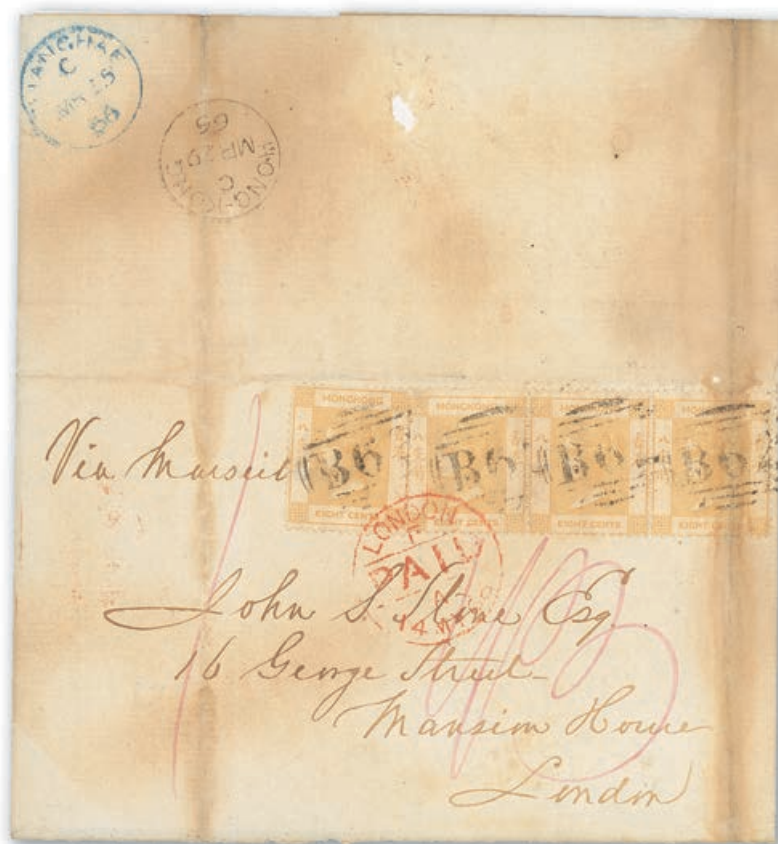 C
HONG-KONG
C
MR 29
65
HONGKONG
EIGHT CENTS
B62
HONGKONG
EIGHT CENTS
B62
HONGKONG
EIGHT CENTS
B62
HONGKONG
EIGHT CENTS
B62
Via Marseil
LONDON
PAID
John S. Stone Esq.
16 George Street
Mansion House
London